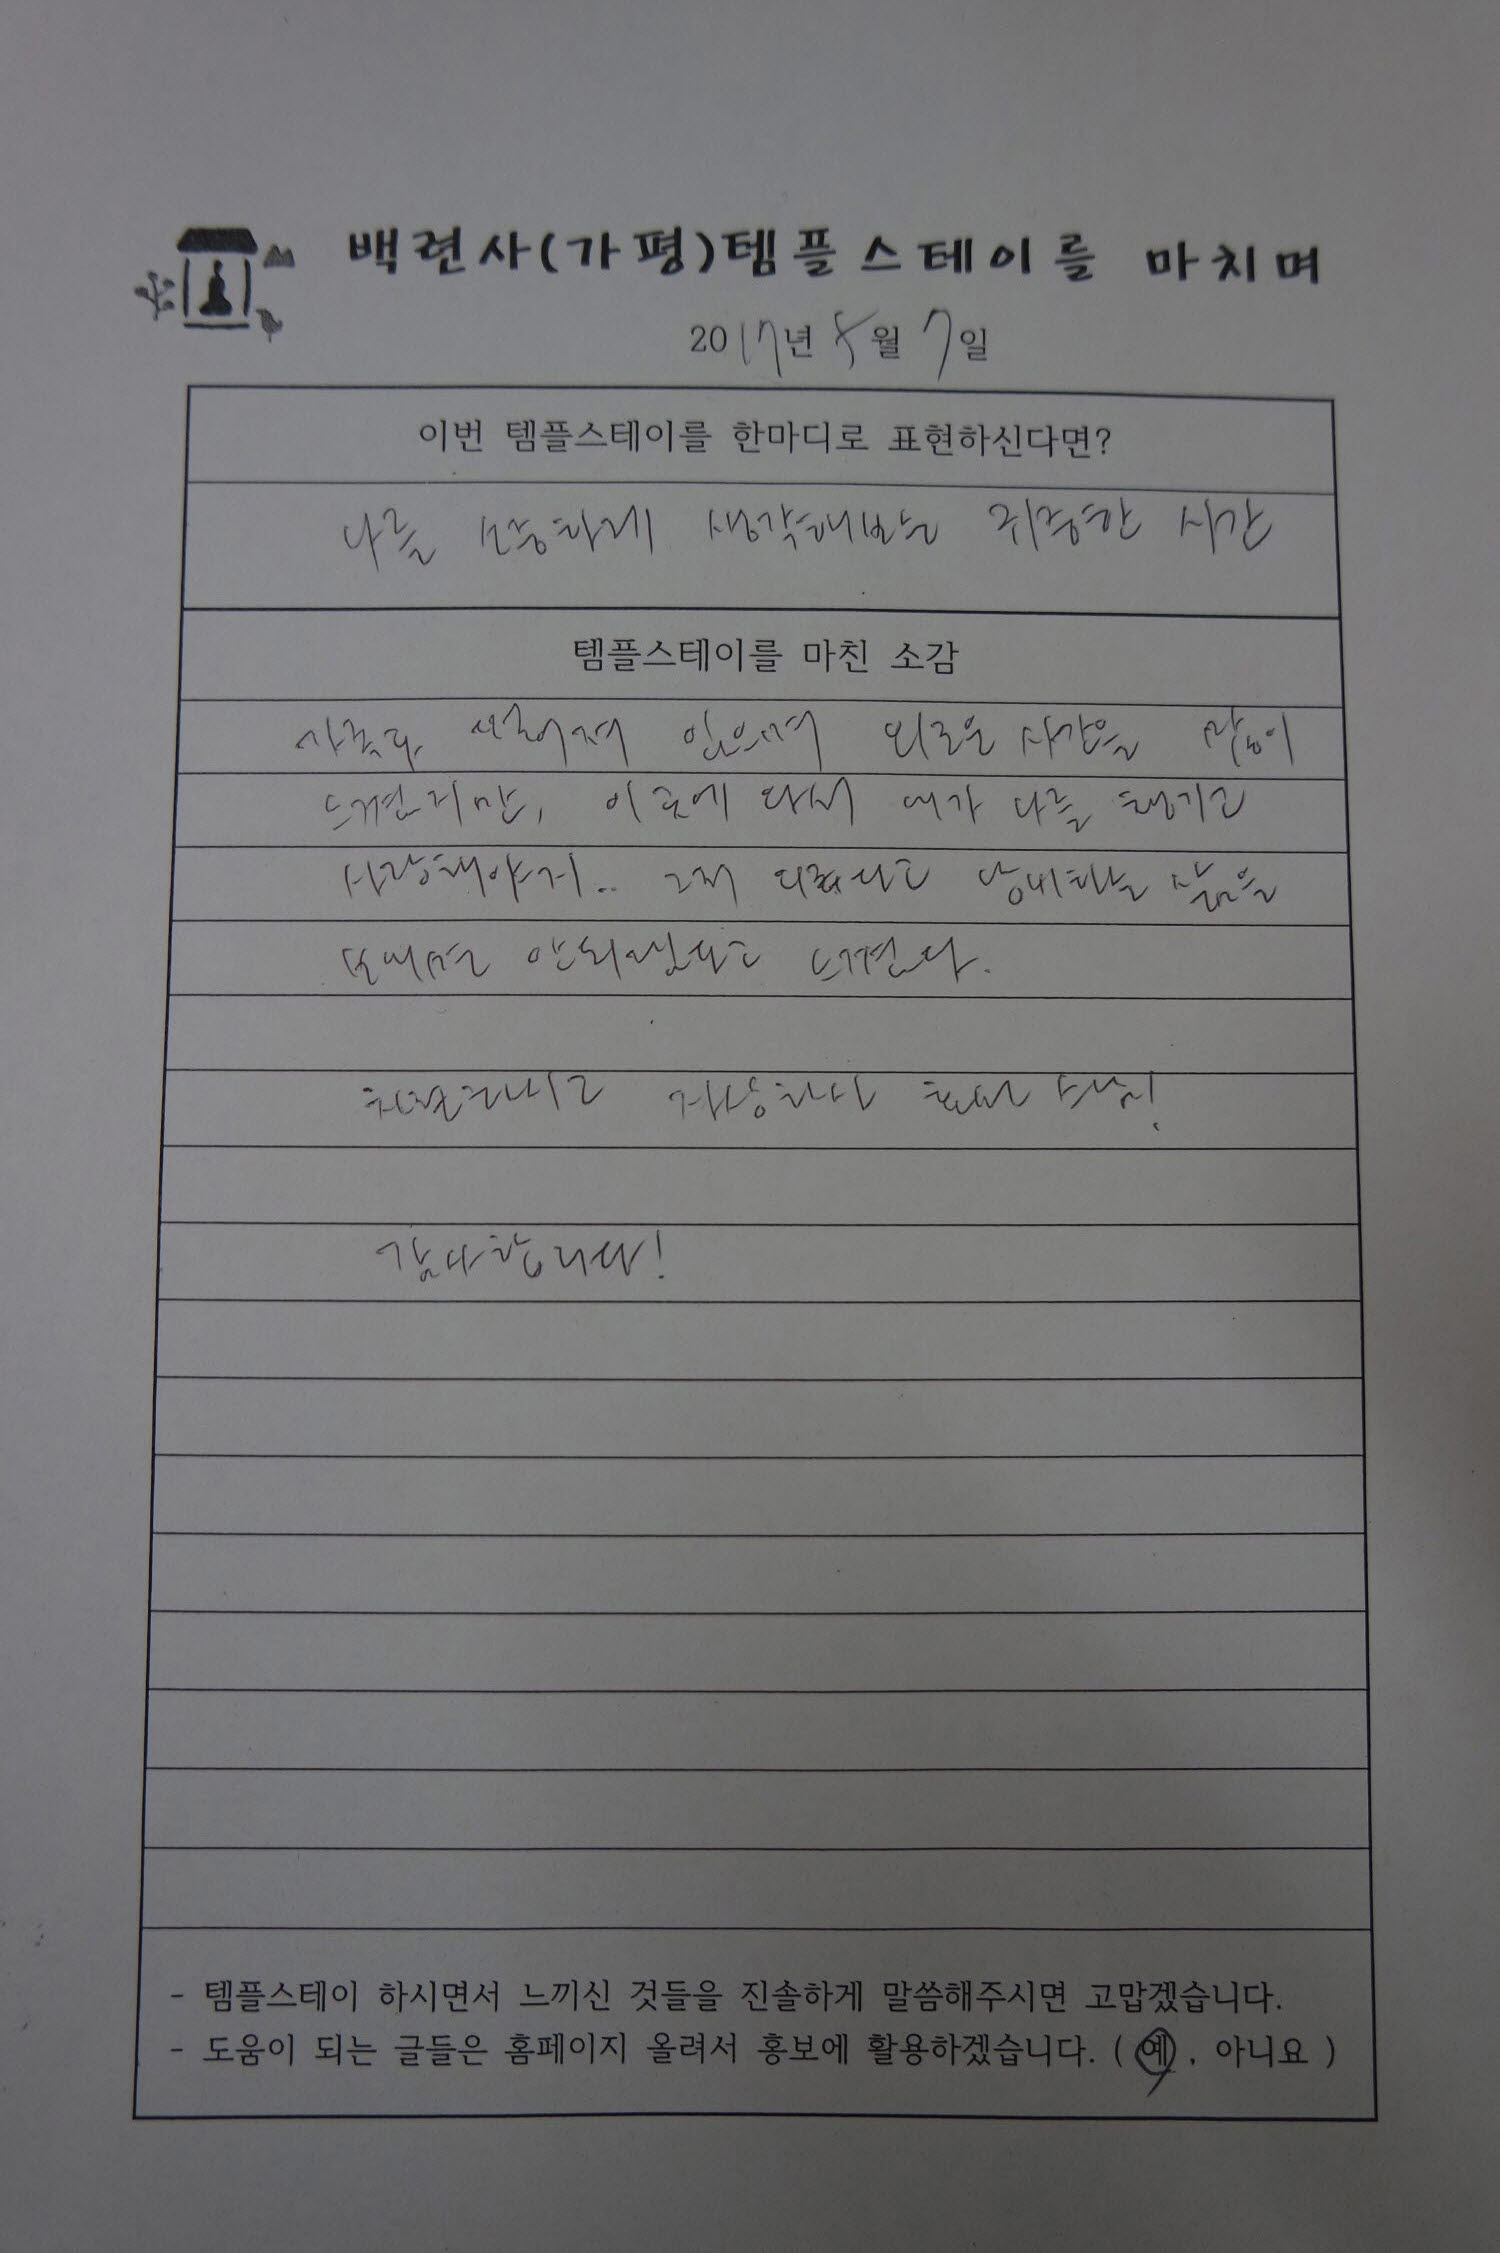 백련사(가평)템플스테이를 마치며
2017년 8월 7일
이번 템플스테이를 한마디로 표현하신다면?
나를 소중하게 생각해보는 귀중한 시간
템플스테이를 마친 소감
가족과 떨어져 있으며 외로운 시간을 많이
느꼈지만, 이곳에 와서 내가 나를 챙기고
사랑해야지.. 그저 외롭다고 낭비하는 삶을
보내면 안되겠다고 느꼈다.
친절하시고 자상하신 스님!
감사합니다!
- 템플스테이 하시면서 느끼신 것들을 진솔하게 말씀해주시면 고맙겠습니다.
- 도움이 되는 글들은 홈페이지 올려서 홍보에 활용하겠습니다. ( 예 , 아니요 )